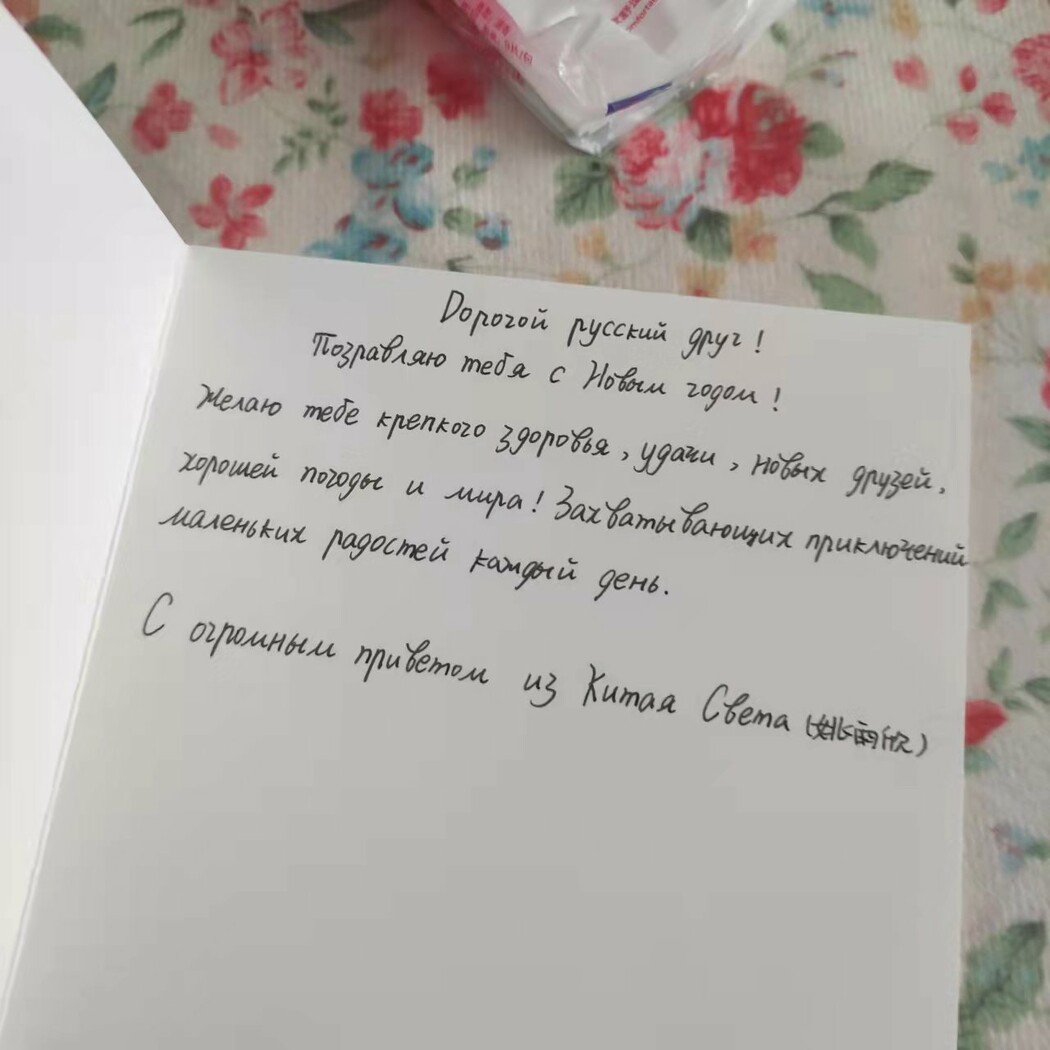 Дорогой русский друг!
Позравляю тебя с Новым годом!
Желаю тебе крепкого здоровья, удачи, новых друзей,
хорошей погоды и мира! Захватывающих приключений
маленьких радостей каждый день.
С огромным приветом из Китая Света (姚雨欣)